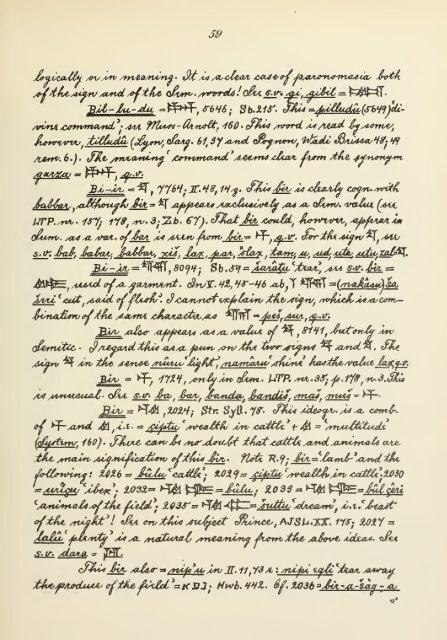 59
logically or in meaning. It is a clear case of paronomasia both
of the sign and of the Sem. words! See s.v. gi, gibil =
Bib-lu-du = , 5646; Sb. 215. This = pilludû (5649) 'di-
vine command'; see Muss-Arnolt, 160. This word is read by some,
however, tilludû (Lyon, Sarg. 61, 37 and Pognon, Wadi Brissa 48; 49
rem. 6.). The meaning 'command' seems clear from the synonym
garza = , q.v.
Bi-ir = , 7764; II. 48, 14 g. This bir is clearly cogn. with
babbar, although bir = appears exclusively as a Sem. value (see
LTP. nr. 157; 178, n. 3; Zb. 67). That bir could, however, appear in
Sum. as a var. of bar is seen from bir = , q.v. For the sign , see
s.v. bab, babar, babbar, xiš, lax, par, šlax, tam, u, ud, uta, utu, zal
Bi-ir = , 8094; Sb. 54 = šarâtu 'tear', see s.v. bir =
, used of a garment. In V. 42, 45-46 ab, = (nakâsu) ša
šêri 'cut, said of flesh'. I cannot explain the sign, which is a com-
bination of the same character as = peš, sur, q.v.
Bir also appears as a value of , 8141, but only in
Semitic. I regard this as a pun on the two signs and . The
sign in the sense nûru 'light', namâru 'shine' has the value lax, q.v.
Bir = , 1724, only in Sem. LTP. nr. 35; p. 178, n. 3. This
is unusual. See s.v. ba, bar, banda, bandiš, maš, muš =
Bir = , 2024; Str. Syll. 78. This ideogr. is a comb.
of and , i.e. = çiptu 'wealth in cattle' + = 'multitude'
(System, 160). There can be no doubt that cattle and animals are
the main signification of this bir. Note R. 9; bir = 'lamb' and the
following: 2026 = bûlu 'cattle'; 2029 = çiptu 'wealth in cattle'; 2030
= urîçu 'ibex'; 2032 = = bûlu; 2033 = = bûl çêri
'animals of the field'; 2035 = = šuttu 'dream', i.e. 'beast
of the night'! See on this subject Prince, AJSL. XX. 175; 2027 =
lalû 'plenty' is a natural meaning from the above ideas. See
s.v. dara =
This bir also = nip'u in II. 11, 73 e: nipi eqli 'tear away
the produce of the field' = ; Hwb. 442. Cf. 2036 = bir-a-šàg-a